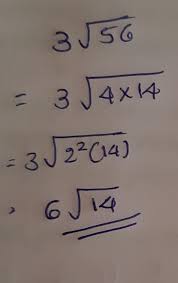 3√56
= 3√4×14
= 3√2²(14)
, 6√14